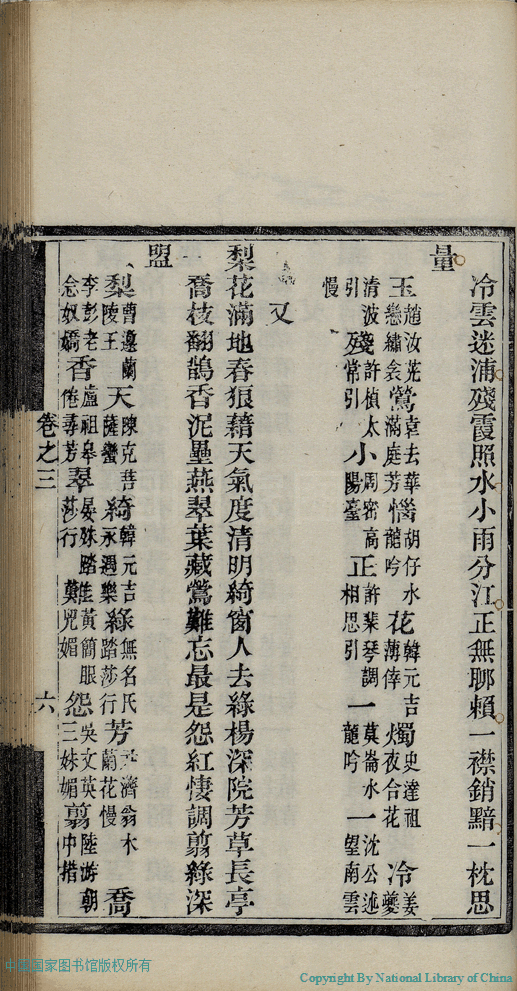 冷雲迷浦殘霞照水小雨分江正無聊賴一襟銷黯一枕思
量
玉趙汝茪戀繡衾鶯袁去華滿庭芳惱胡仔水龍吟花韓元吉薄倖燭史達祖夜合花冷姜夔
清波引殘許楨太常引小周密高陽臺正許棐琴調相思引一莫崙水龍吟一沈公述望南雲
慢
又
梨花滿地春狼藉天氣度清明綺窗人去綠楊深院芳草長亭
喬枝翻鵲香泥壘燕翠葉藏鶯難忘最是怨紅悽調剪綠深
盟
梨曹邍蘭陵王天陳克菩薩蠻綺韓元吉永遇樂綠無名氏踏莎行芳濟翁木蘭花慢喬
李彭老念奴嬌香盧祖皋倦尋芳翠晏殊踏莎行難黃簡眼兒媚怨吳文英三姝媚剪陸游朝中措
卷之三
六
中国国家图书馆版权所有
Copyright By National Library of China